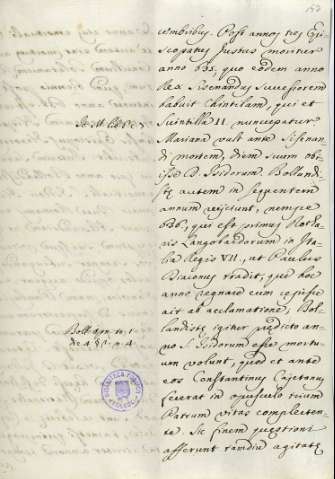 cembribus. Post annos tres Epi
scopatus Justus moritur
anno 635, quo eodem anno
Rex Sisenandus successorem
habuit Chintilam, qui et
Suintilla II. nuncupatur
Mariana vult ante Sisenan
di mortem, diem suum ob
isse D. Isidorum. Bollandi
stę autem in sequentem
annum reijciunt, nempe
636, qui est primus Rotha
ris Langobardorum in Ita
lia Regis VII., ut Paulus
Diaconus tradit, quo hoc
anno regnare eum cępisse
ait ab acclamatione, Bol
landistę igitur prędicto an
no S. Isidorum esse mortu
um volunt, quod et ante
eos Constantinus Cajetanus
fecerat in opusculo trium
Patrum vitas complecten
te. Sic finem quęstioni
afferunt tamdiu agitatę
Bolland. to. 1
de 4 n. 4
BIBLIOTECA